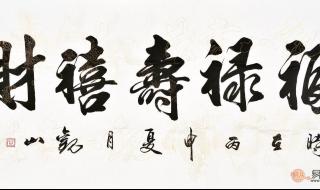 福禄壽禧財
時在丙申夏月山